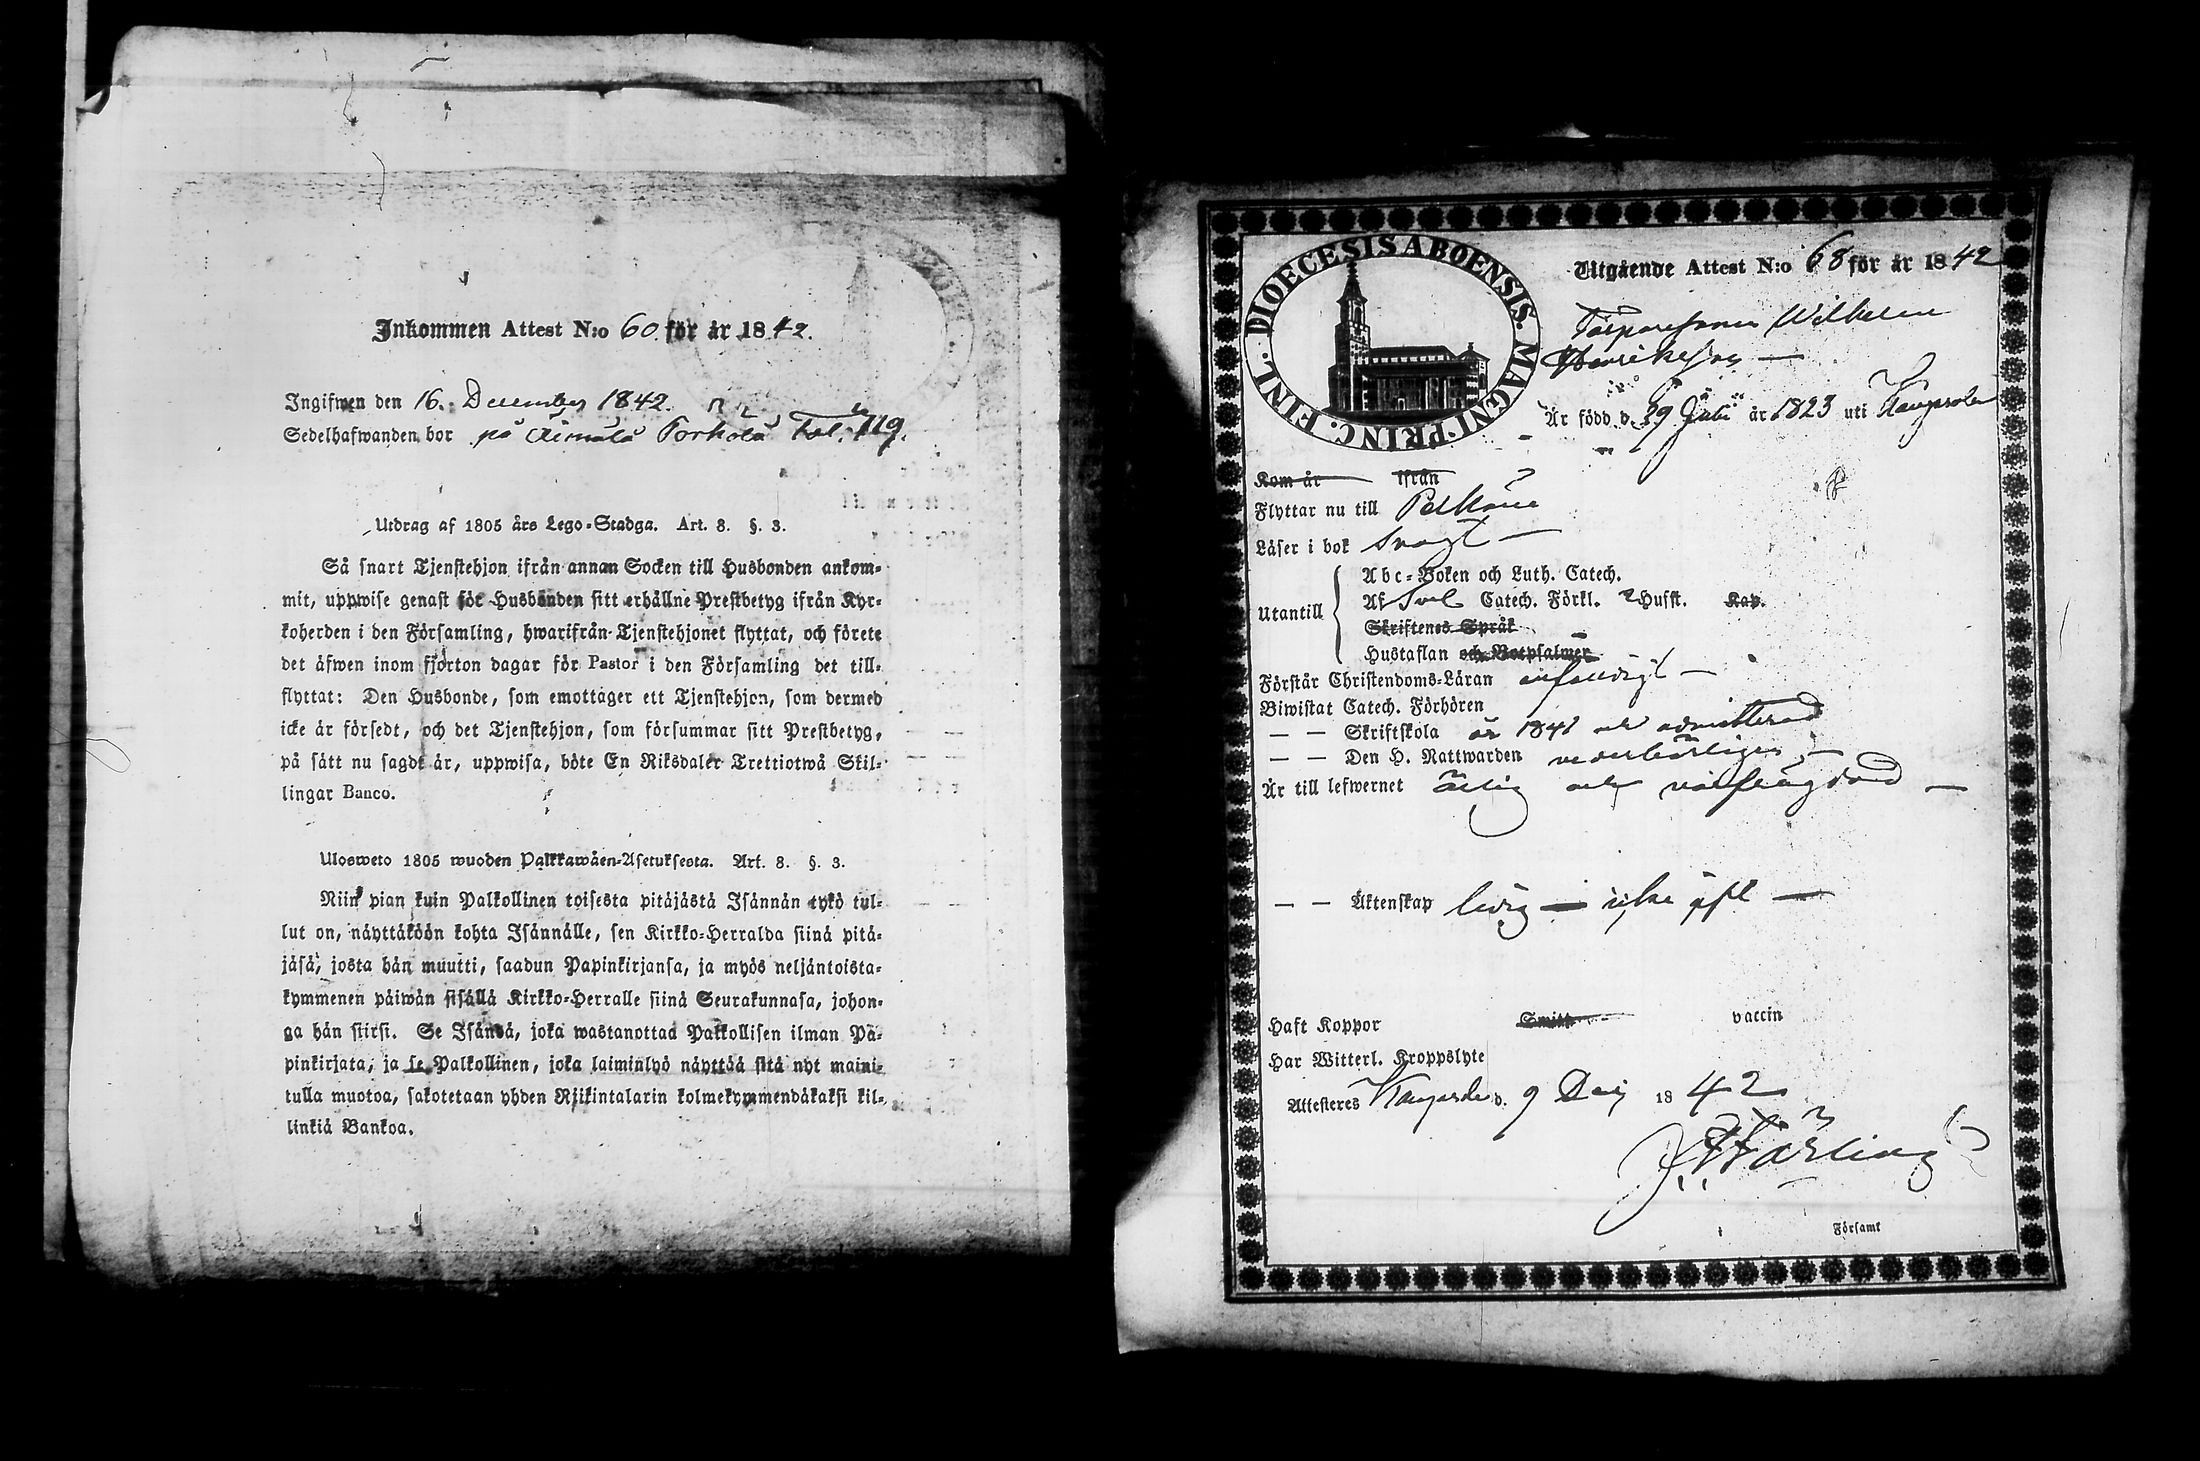 Inkommen Attest N:o 60 för år 1842.
Ingifwen den 16. December 1842.
Sedelhafwanden bor på Äimälä Porkola Fol. 119.
Utdrag af 1805 års Lego-Stadga. Art. 8. §. 3.
Så snart Tjenstehjon ifrån annan Socken till Husbonden ankom-
mit, uppwise genast för Husbonden sitt erhållne Prestbetyg ifrån Kyr-
koherden i den Församling, hwarifrån Tjenstehjonet flyttat, och förete
det äfwen inom fjorton dagar för Pastor i den Församling det till-
flyttat: Den Husbonde, som emottager ett Tjenstehjon, som dermed
icke är försedt, och det Tjenstehjon, som försummar sitt Prestbetyg,
på sätt nu sagdt är, uppwisa, böte En Riksdaler Trettiotwå Skil-
lingar Banco.
Ulosweto 1805 wuoden Palkkawäen-Asetuksesta. Art. 8. §. 3.
Niin pian kuin Palkollinen toisesta pitäjästä Isännän tykö tul-
lut on, näyttäköön kohta Isännälle, sen Kirkko-Herralda siinä pitä-
jäsä, josta hän muutti, saadun Papinkirjansa, ja myös neljäntoista-
kymmenen päiwän sisällä Kirkko-Herralle siinä Seurakunnasa, johon-
ga hän siirsi. Se Isändä, joka wastanottaa Palkollisen ilman Pa-
pinkirjata, ja se Palkollinen, joka laiminlyö näyttää sitä nyt maini-
tulla muotoa, sakotetaan yhden Riikintalarin kolmekymmendäkaksi kil-
linkiä Bankoa.
DIOECESIS ABOENSIS. MAGNI. PRINC. FINL.
Utgående Attest N:o 68 för år 1842
Wilhelm
Henriksson
Är född d. 29 Juli år 1823 uti Kangasala
Kom år ifrån
Flyttar nu till Pelkäne
Läser i bok svagt
Utantill
Abc-Boken och Luth. Catech.
Af Svel Catech. Förkl. Husst. Kap.
Skriftenes Språk
Hustaflan och Botpsalmer
Förstår Christendoms-Läran enfaldigt
Biwistat Catech. Förhören
— — Skriftskola år 1841 och admitterad
— — Den H. Nattwarden vederbörligen
Är till lefwernet ärlig och oförfång
— — Äktenskap ledig — icke
Haft Koppor Smitt vaccin
Har Witterl. Kroppslyte
Attesteres Kangasala d. 9 Dec 1842
Församl